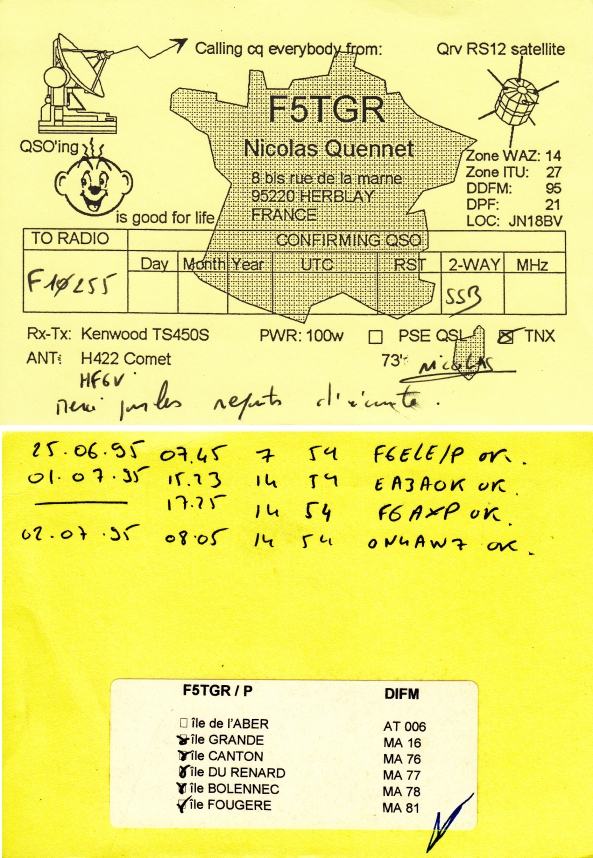 Calling cq everybody from:
Qrv RS12 satellite
F5TGR
Nicolas Quennet
8 bis rue de la marne
95220 HERBLAY
FRANCE
QSO'ing
is good for life
Zone WAZ: 14
Zone ITU: 27
DDFM: 95
DPF: 21
LOC: JN18BV
TO RADIO CONFIRMING QSO
Day Month Year UTC RST 2-WAY MHz
F10255 SSB
Rx-Tx: Kenwood TS450S PWR: 100w PSE QSL TNX
ANT: H422 Comet 73's Nicolas
HF6V
merci pour les reports d'écoute.
25.06.95 07.45 7 54 F6ELE/P OK.
01.07.95 15.23 14 54 EA3AOK OK.
17.25 14 54 F6AXP OK.
02.07.95 08.05 14 54 ON4AW7 OK.
F5TGR / P DIFM
île de l'ABER AT 006
île GRANDE MA 16
île CANTON MA 76
île DU RENARD MA 77
île BOLENNEC MA 78
île FOUGERE MA 81